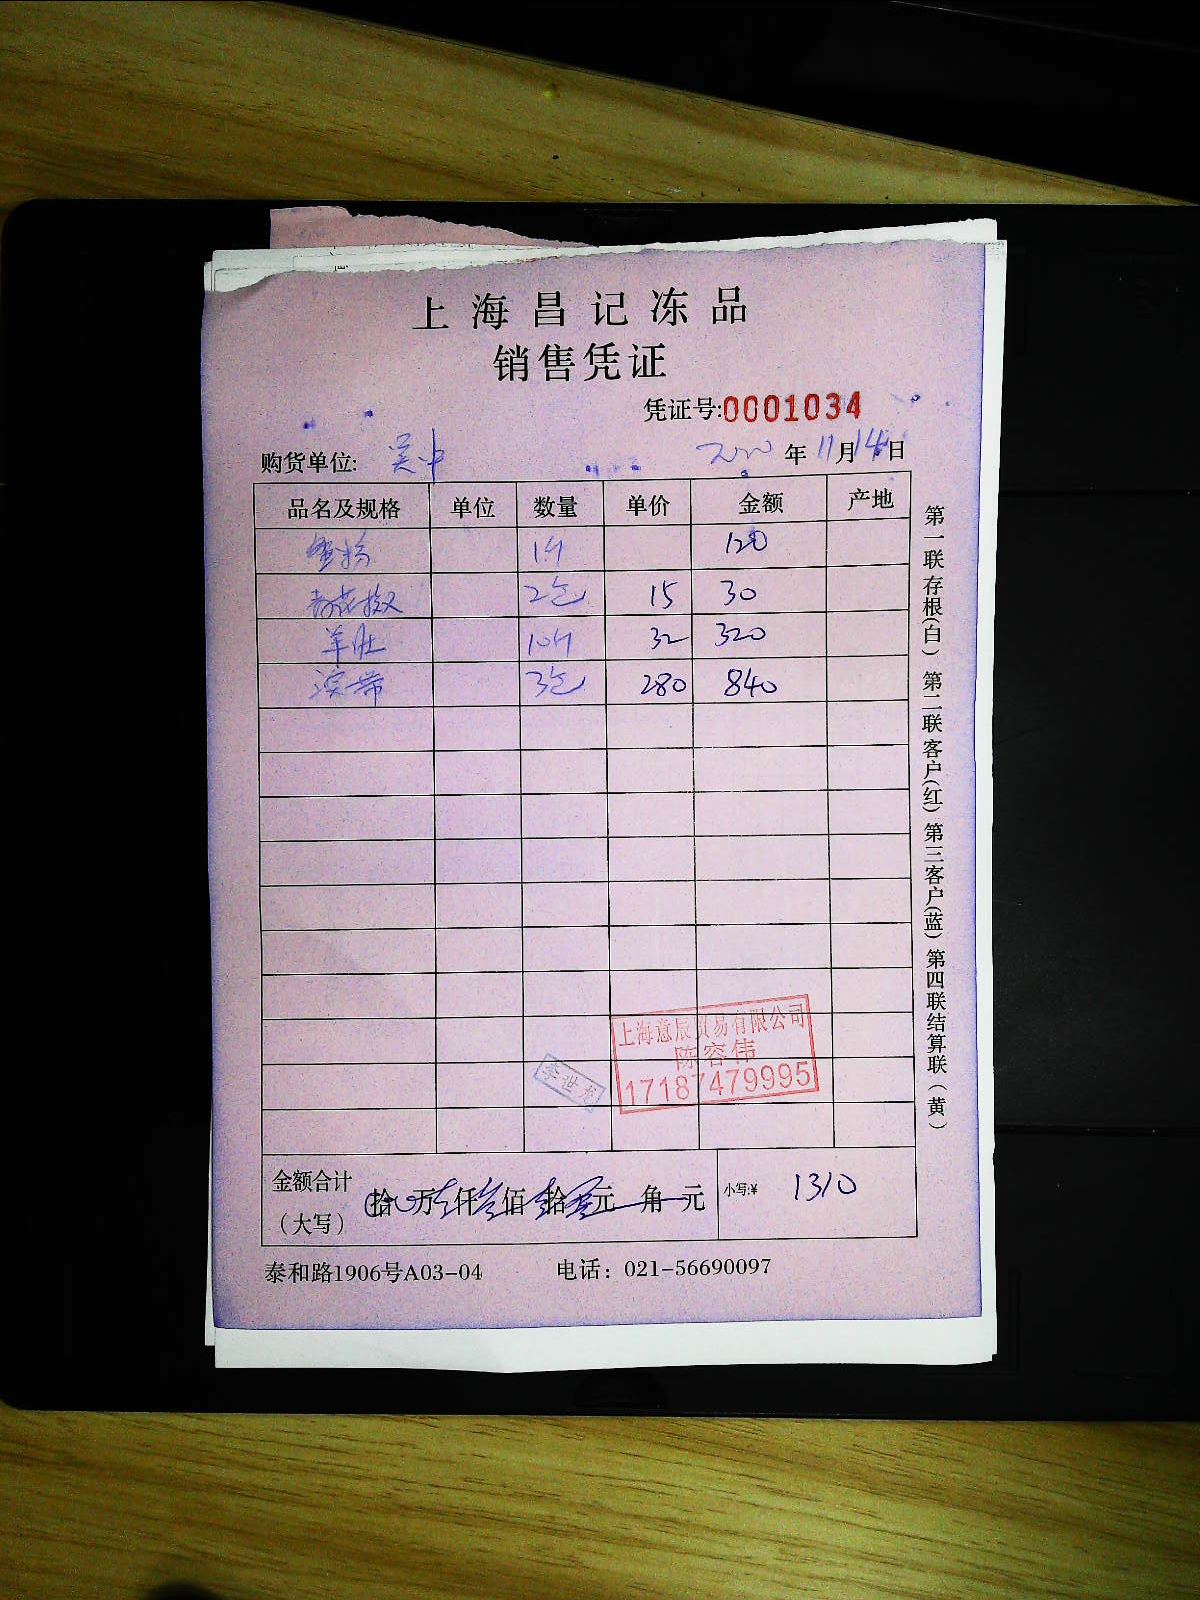 上海昌记冻品
销售凭证
凭证号:0001034
购货单位: 吴中 2020年11月14日
品名及规格 单位 数量 单价 金额 产地
1件 120
2包 15 30
羊肚 10斤 32 320
3包 280 840
第一联存根(白) 第二联客户(红) 第三客户(蓝) 第四联结算联(黄)
上海意辰贸易有限公司
陈容伟
17187479995
李世龙
金额合计(大写) 拾 万 仟 佰 拾 元 角 元 小写:¥ 1310
泰和路1906号A03-04 电话: 021-56690097